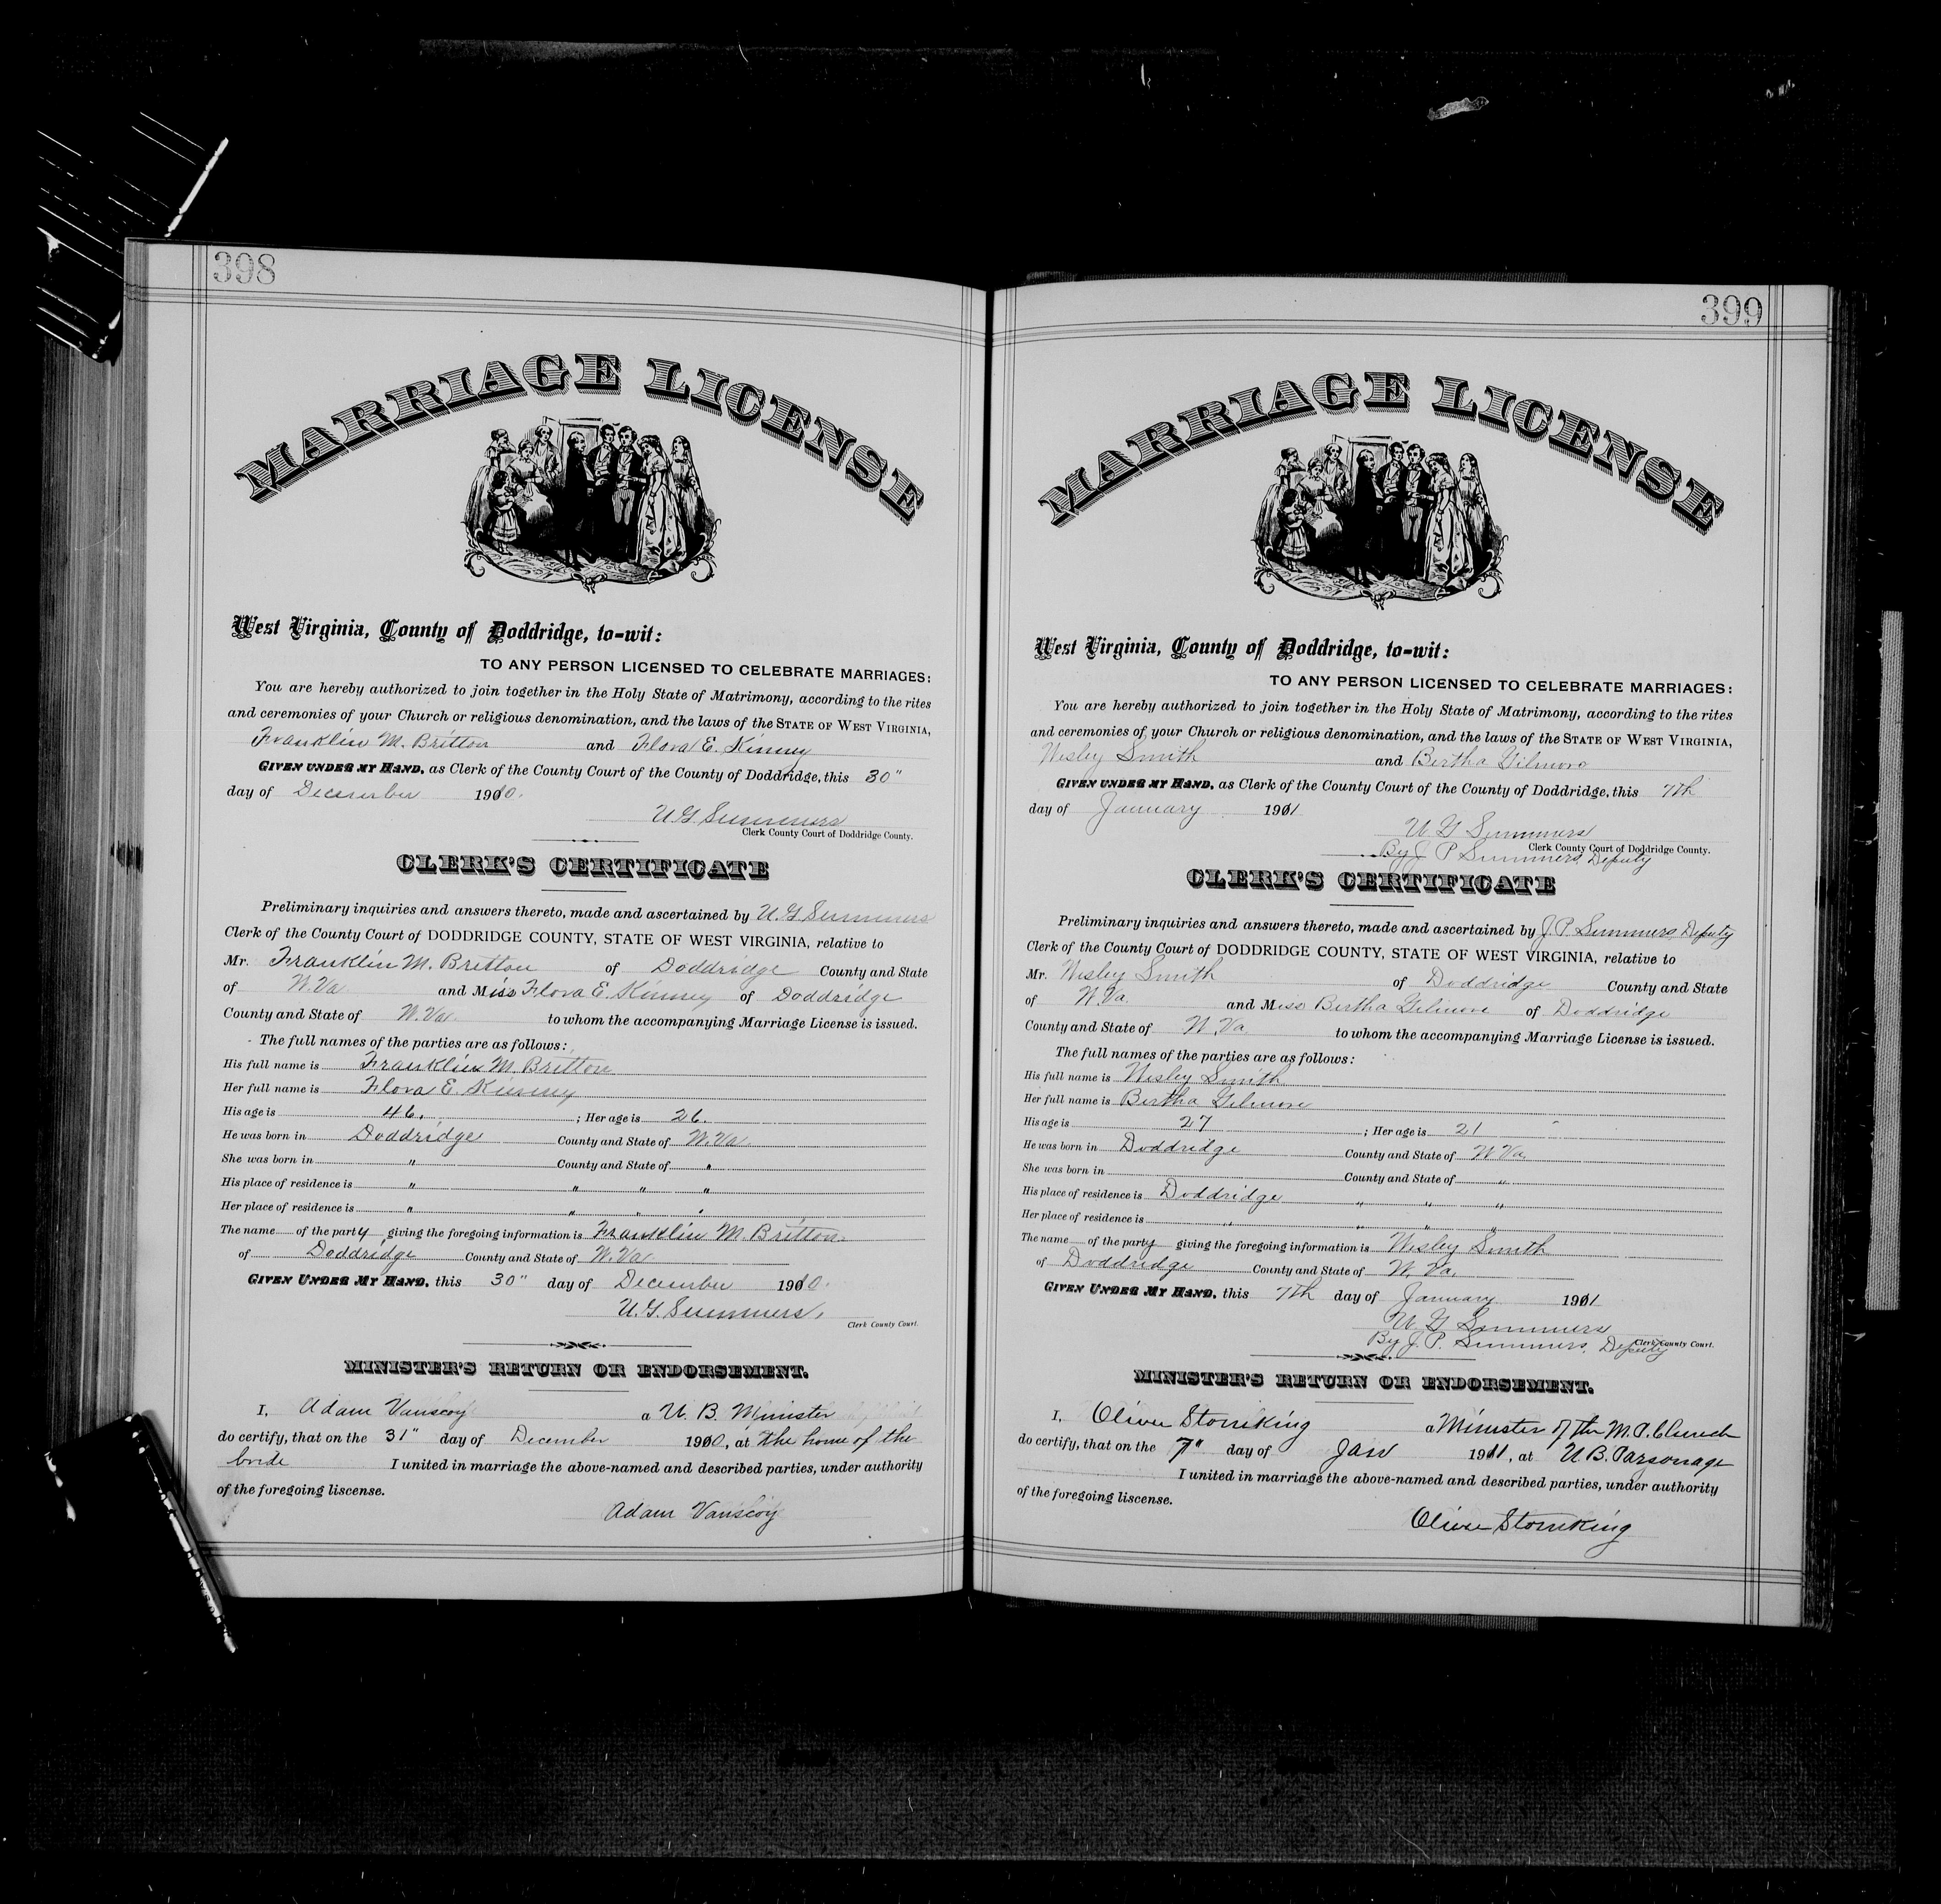 398
MARRIAGE LICENSE
West Virginia, County of Doddridge, to-wit:
TO ANY PERSON LICENSED TO CELEBRATE MARRIAGES:
You are hereby authorized to join together in the Holy State of Matrimony, according to the rites
and ceremonies of your Church or religious denomination, and the laws of the STATE OF WEST VIRGINIA,
Franklin M. Britton and Flora E. Kinney
GIVEN UNDER MY HAND, as Clerk of the County Court of the County of Doddridge, this 30"
day of December 1900.
U G Summers
Clerk County Court of Doddridge County.
CLERK'S CERTIFICATE
Preliminary inquiries and answers thereto, made and ascertained by U. G Summers
Clerk of the County Court of DODDRIDGE COUNTY, STATE OF WEST VIRGINIA, relative to
Mr. Franklin M. Britton of Doddridge County and State
of W. Va and Miss Flora E. Kinney of Doddridge
County and State of W. Va. to whom the accompanying Marriage License is issued.
The full names of the parties are as follows:
His full name is Franklin M. Britton
Her full name is Flora E. Kinney
His age is 46. ; Her age is 26.
He was born in Doddridge County and State of W. Va
She was born in " County and State of "
His place of residence is " " " "
Her place of residence is " " " "
The name of the party giving the foregoing information is Franklin M. Britton.
of Doddridge County and State of W. Va
GIVEN UNDER MY HAND, this 30" day of December 1900.
U. G. Summers,
Clerk County Court.
MINISTER'S RETURN OR ENDORSEMENT.
I, Adam Vanscoy a U. B. Minister
do certify, that on the 31" day of December 1900, at the home of the
bride I united in marriage the above-named and described parties, under authority
of the foregoing liscense.
Adam Vanscoy
399
MARRIAGE LICENSE
West Virginia, County of Doddridge, to-wit:
TO ANY PERSON LICENSED TO CELEBRATE MARRIAGES:
You are hereby authorized to join together in the Holy State of Matrimony, according to the rites
and ceremonies of your Church or religious denomination, and the laws of the STATE OF WEST VIRGINIA,
Wesley Smith and Bertha Gilmore
GIVEN UNDER MY HAND, as Clerk of the County Court of the County of Doddridge, this 7th
day of January 1901
U. G Summers
Clerk County Court of Doddridge County.
By J P Summers, Deputy
CLERK'S CERTIFICATE
Preliminary inquiries and answers thereto, made and ascertained by J. P. Summers, Deputy
Clerk of the County Court of DODDRIDGE COUNTY, STATE OF WEST VIRGINIA, relative to
Mr. Wesley Smith of Doddridge County and State
of W. Va. and Miss Bertha Gilmore of Doddridge
County and State of W. Va to whom the accompanying Marriage License is issued.
The full names of the parties are as follows:
His full name is Wesley Smith
Her full name is Bertha Gilmore
His age is 27 ; Her age is 21
He was born in Doddridge County and State of W Va
She was born in County and State of "
His place of residence is Doddridge " " "
Her place of residence is " " " "
The name of the party giving the foregoing information is Wesley Smith
of Doddridge County and State of W. Va.
GIVEN UNDER MY HAND, this 7th day of January 1901
U. G Summers
Clerk County Court.
By J. P. Summers, Deputy
MINISTER'S RETURN OR ENDORSEMENT.
I, Oliver Stoneking a Minister of the M. P. Church
do certify, that on the 7" day of Jan 1901, at U. B. Parsonage
I united in marriage the above-named and described parties, under authority
of the foregoing liscense.
Oliver Stoneking